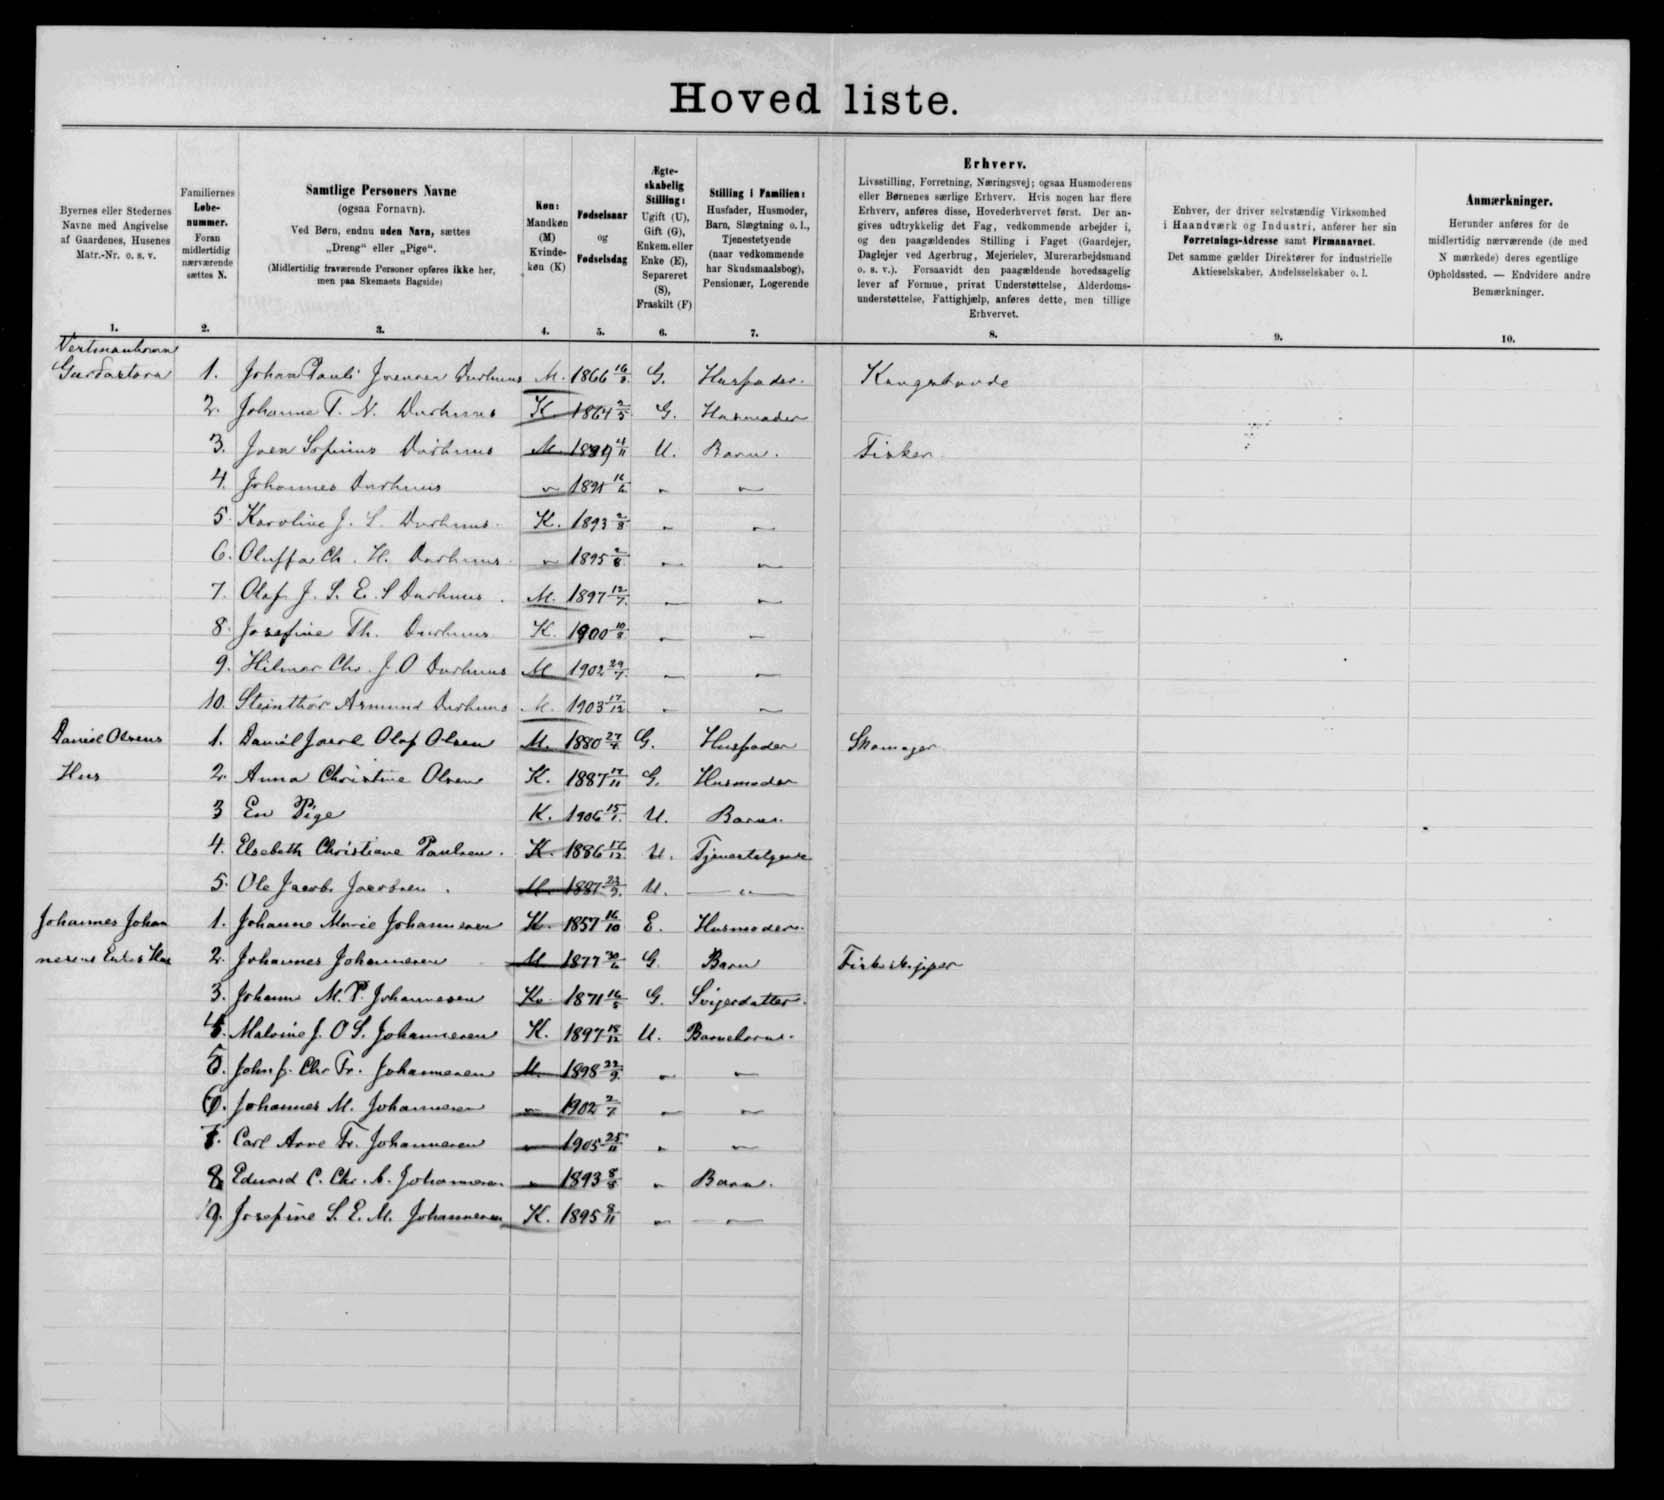 Hoved liste.
Byernes eller Stedernes Navne med Angivelse af Gaardenes, Husenes Matr.-Nr. o. s. v.
Familiernes Løbe-nummer. Foran midlertidig nærværende sættes N.
Samtlige Personers Navne
(ogsaa Fornavn).
Ved Børn, endnu uden Navn, sættes „Dreng" eller „Pige".
(Midlertidig fraværende Personer opføres ikke her, men paa Skemaets Bagside)
Køn: Mandkøn (M) Kvinde-køn (K)
Fødselsaar og Fødselsdag
Ægte-skabelig Stilling: Ugift (U), Gift (G), Enkem. eller Enke (E), Separeret (S), Fraskilt (F)
Stilling i Familien: Husfader, Husmoder, Barn, Slægtning o. l., Tjenestetyende (naar vedkommende har Skudsmaalsbog), Pensionær, Logerende
Erhverv.
Livsstilling, Forretning, Næringsvej; ogsaa Husmoderens eller Børnenes særlige Erhverv. Hvis nogen har flere Erhverv, anføres disse, Hovederhvervet først. Der angives udtrykkelig det Fag, vedkommende arbejder i, og den paagældendes Stilling i Faget (Gaardejer, Daglejer ved Agerbrug, Mejerielev, Murerarbejdsmand o. s. v.). Forsaavidt den paagældende hovedsagelig lever af Formue, privat Understøttelse, Alderdoms-understøttelse, Fattighjælp, anføres dette, men tillige Erhvervet.
Enhver, der driver selvstændig Virksomhed i Haandværk og Industri, anfører her sin Forretnings-Adresse samt Firmanavnet. Det samme gælder Direktører for industrielle Aktieselskaber, Andelsselskaber o. l.
Anmærkninger.
Herunder anføres for de midlertidig nærværende (de med N mærkede) deres egentlige Opholdssted. — Endvidere andre Bemærkninger.
1. 2. 3. 4. 5. 6. 7. 8. 9. 10.
Vestmanhavn
1. Johan Pauli Joensen Durhuus M. 1866 G. Husfader. Kongsbonde
2. Johanne T. N. Durhuus K. 1864 2/5 G. Husmoder
3. Joen Sofinus Durhuus M. U. Barn. Fisker
4. Johannes Durhuus " " "
5. Karoline J. S. Durhuus. K. 1893 2/8 " "
6. Oluffa Ch. H. Durhuus. " 1895 " "
7. Olaf J. S. E. S Durhuus. M. 1897 12/7 " "
8. Josefine Th. Durhuus K. 1900 10/8 " "
9. Hilmar Chr. J. O Durhuus M 1902 29/7 " "
10. Steinthor Asmund Durhuus M. 1903 17/12 " "
Daniel Olsens 1. Daniel Jacob Olaf Olsen M. 1880 27/4 G. Husfader Skomager
Hus 2. Anna Christine Olsen K. 1887 17/11 G. Husmoder
3 En Pige K. 1906 U. Barn.
4. Elsebeth Christiane Paulsen. K. 1886 17/12 U.
5. Ole Jacob Jacobsen. M. 1887 23/9 U. "
Johannes Johan 1. Johanne Marie Johannesen K. 1857 16/10 E. Husmoder.
nesens Enkes Hus 2. Johannes Johannesen M 1877 G. Barn Fiskeskipper
3. Johanne M. P. Johannesen K. 1871 16/5 G. Svigerdatter.
4. Malvine J. O S. Johannesen K. 1897 18/12 U. Barnebarn.
5. John J. Chr Fr. Johannesen M. 1898 22/9 " "
6. Johannes M. Johannesen " 1902 2/7 " "
7. Carl Arne Fr. Johannesen " 1905 25/11 " "
8 Edward C. Chr. A. Johannesen " 1893 8/8 " Barn.
9. Josefine S. E. M. Johannesen K. 1895 8/11 " "